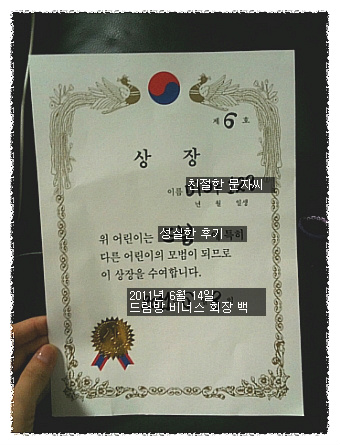 제 6 호
상 장
이름 친절한 문자씨
년 월 일생
위 어린이는 성실한 후기 특히
다른 어린이의 모범이 되므로
이 상장을 수여합니다.
2011년 6월 14일
드럼방 비너스 회장 백